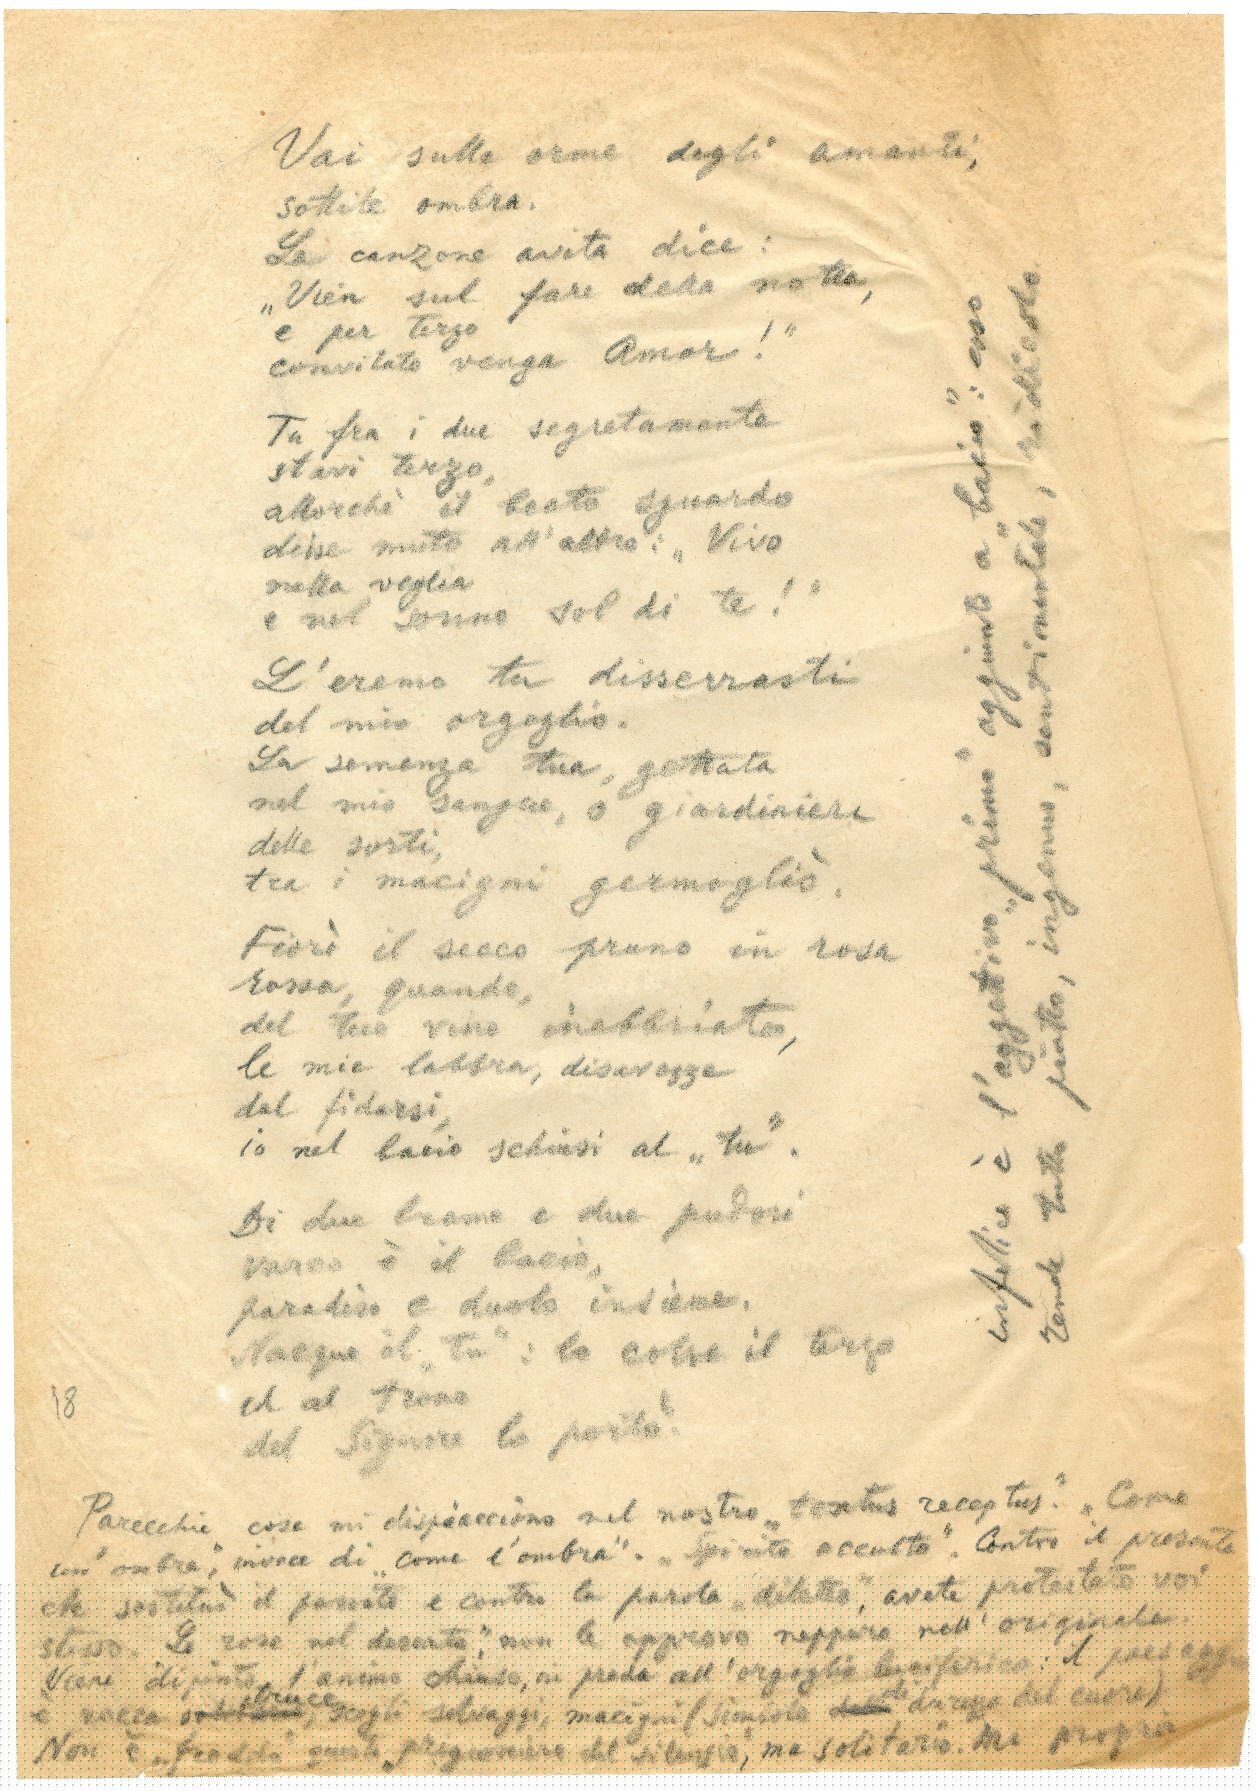 Vai sulle orme degli amanti,
sottile ombra.
La canzone avita dice:
„Vien sul fare della notte,
e per terzo
convitato venga Amor!"
Tu fra i due segretamente
stavi terzo,
allorchè il beato sguardo
disse muto all'altro: „Vivo
nella veglia
e nel sonno sol di te!"
L'eremo tu disserrasti
del mio orgoglio.
La semenza tua, gettata
nel mio sangue, o giardiniere
delle sorti,
tra i macigni germogliò.
Fiorì il secco pruno in rosa
rossa, quando,
del tuo vino inebbriate,
le mie labbra, disavezze
dal fidarsi,
io nel bacio schiusi al „tu".
Di due brame e due pudori
varco è il bacio,
paradiso e duolo insieme.
Nacque il „tu": lo colse il terzo
ed al trono
del Signore lo portò.
18
Parecchie cose mi dispiacciono nel nostro „textus receptus". „Come
un'ombra", invece di „come l'ombra". „Spirito occulto". Contro il presente
che sostituì il passato e contro la parola „diletto", avete protestato voi
stesso. „Le rose nel deserto", non le approvo neppure nell'originale.
Viene dipinto l'animo chiuso, in preda all'orgoglio luciferico: il paesaggio
è rocca brulce, scogli selvaggi, macigni (simbolo di durezza del cuore)
Non è „freddo" questo „prigioniero del silenzio", ma solitario. Ma proprio
infelice è l'aggettivo „primo" aggiunto a „bacio": esso
rende tutto piatto, ingenuo, sentimentale, ridicolo.